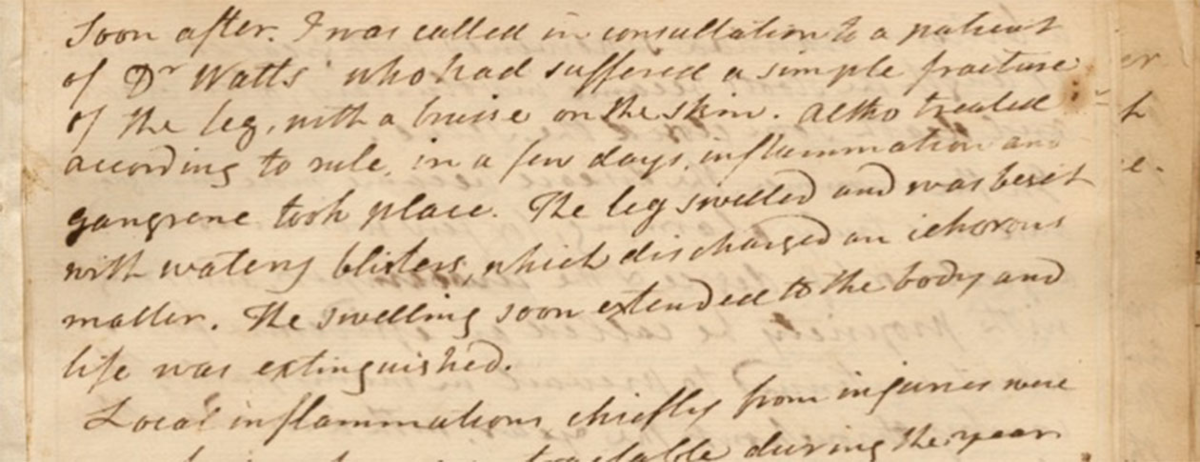 Soon after. I was called in consultation to a patient
of Dr Watts who had suffered a simple fracture
of the leg, with a bruise on the skin. altho treated
according to rule, in a few days, inflammation and
gangrene took place. The leg swelled and was beset
with watery blisters which discharged an ichorous
matter. The swelling soon extended to the body and
life was extinguished.
Local inflammations chiefly from injuries were
during the year